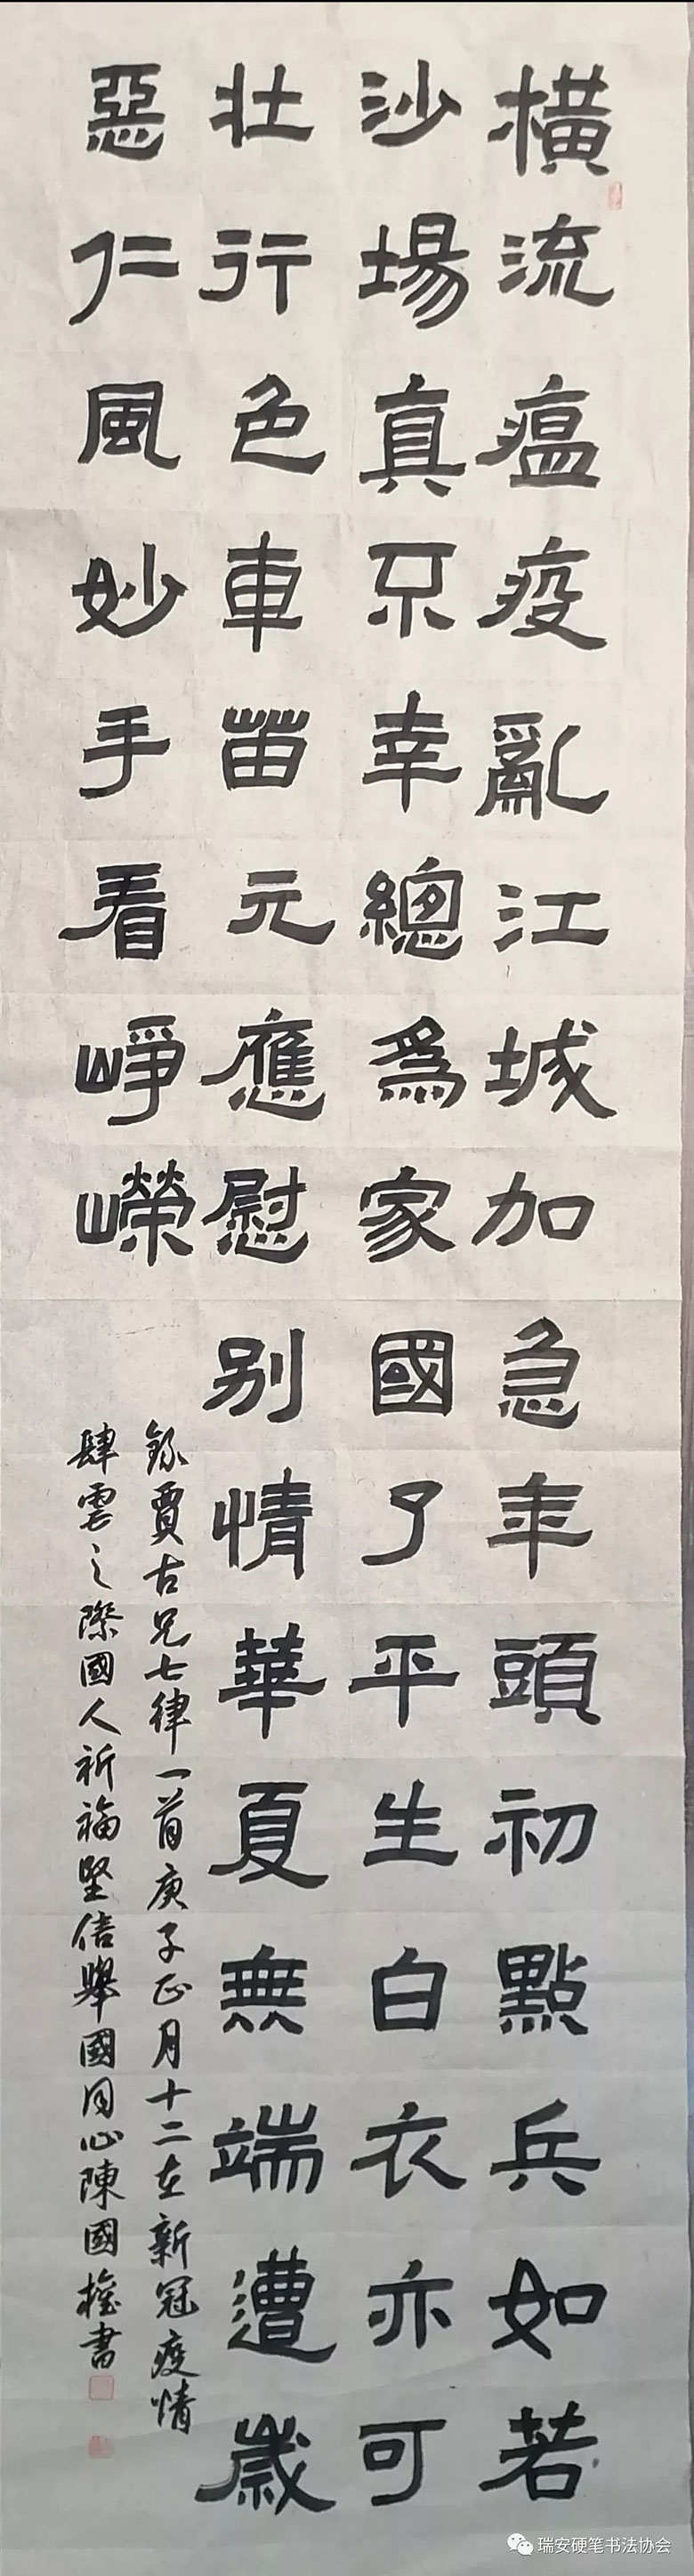 橫流瘟疫亂江城加急年頭初點兵如若
沙場真不幸總為家國了平生白衣亦可
壯行色車苗元應慰別情華夏無端遭歲
惡仁風妙手看崢嶸
錄賈古兄七律一首庚子正月十二在新冠疫情
肆雲之際國人祈福堅信舉國同心陳國權書
瑞安硬笔书法协会